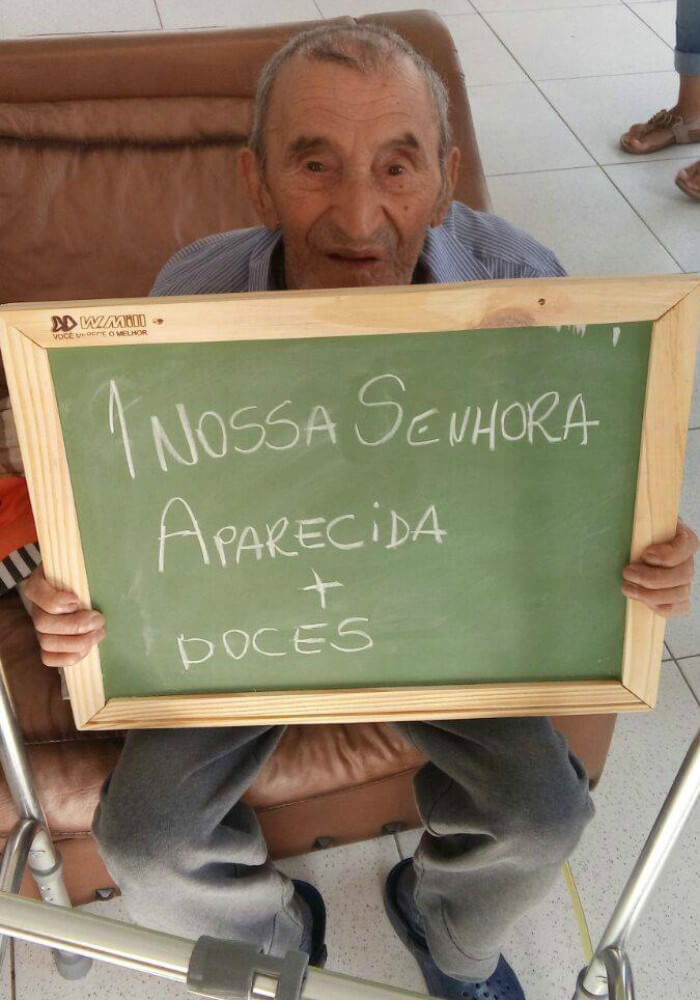 W.Mill
VOCÊ MERECE O MELHOR
1 NOSSA SENHORA
APARECIDA
+
DOCES